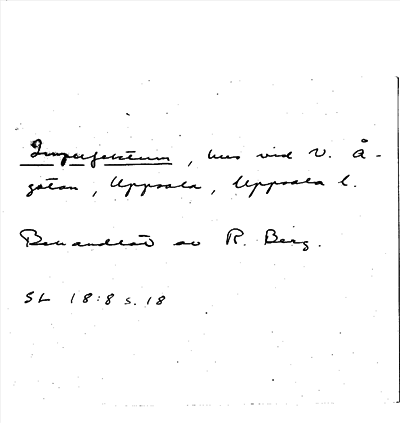 Imperfektum, hus vid V. Å-
gatan, Uppsala, Uppsala l.
Behandlat av R. Berg.
SL 18:8 s. 18